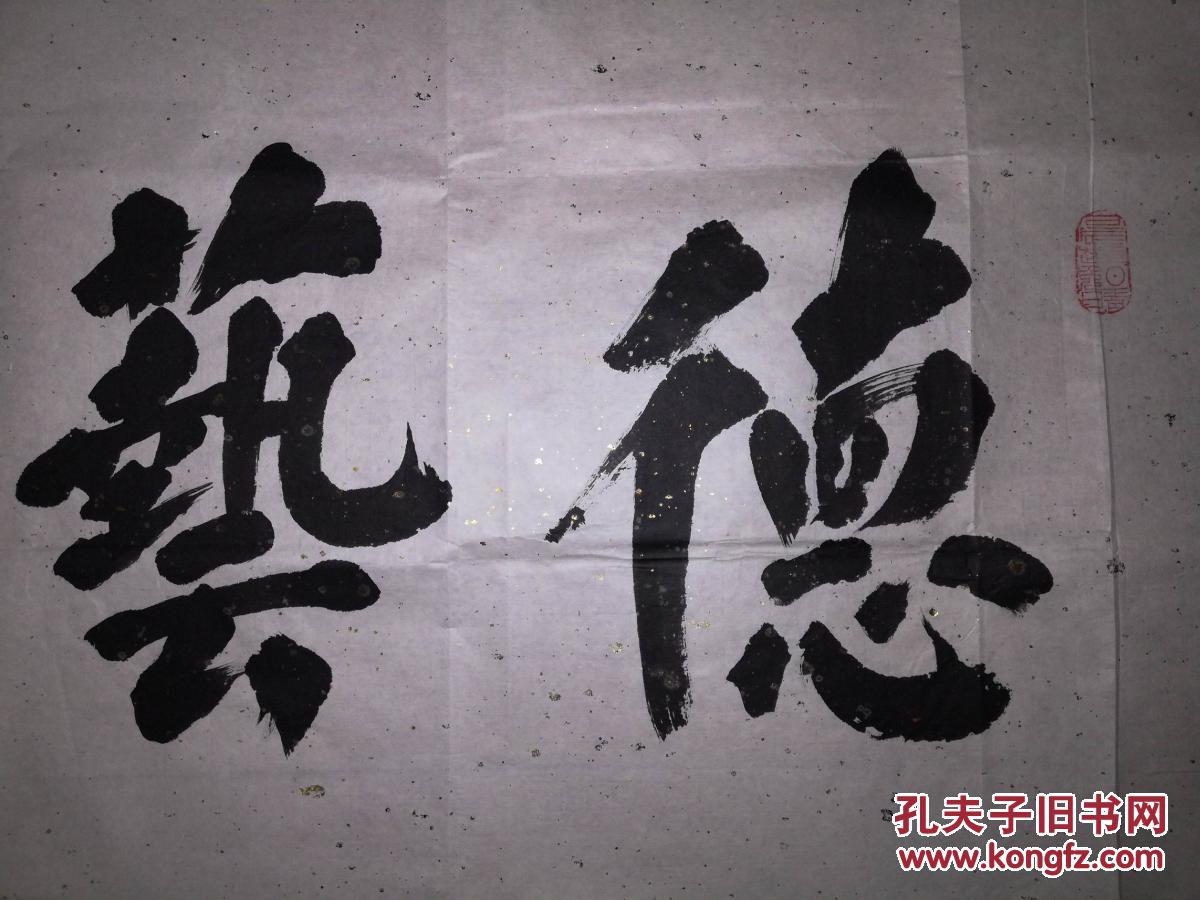 德藝
孔夫子旧书网
www.kongfz.com